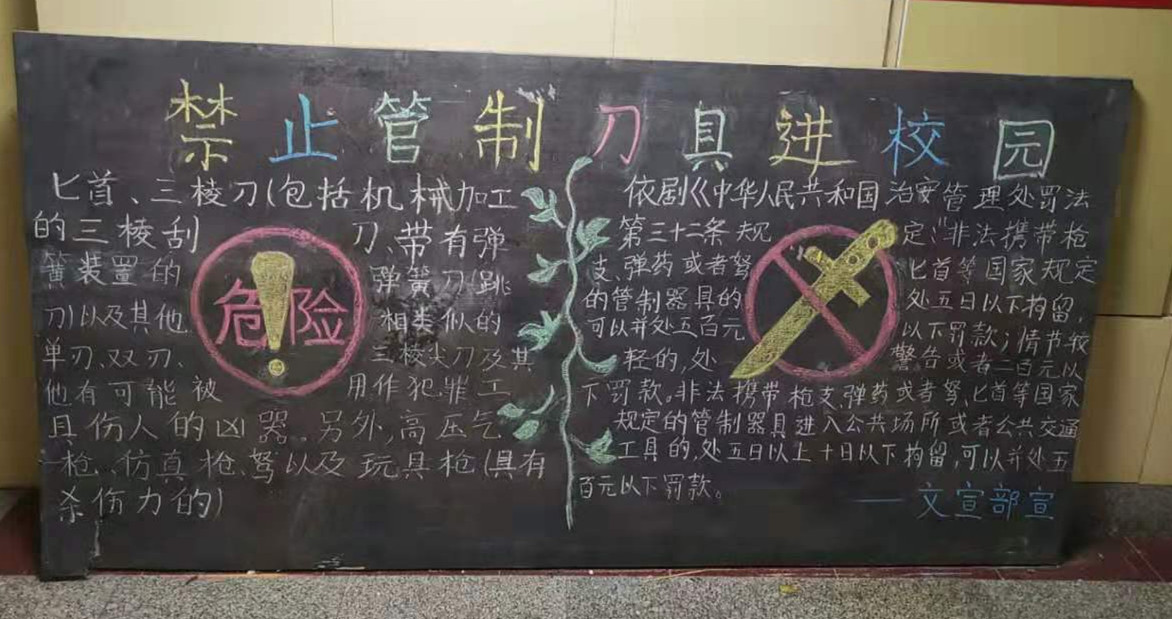 禁止管制刀具进校园
匕首、三棱刀(包括机械加工
的三棱刮刀、带有弹
簧装置的弹簧刀(跳
刀)以及其他相类似的
单刃、双刃、三棱尖刀及其
他有可能被用作犯罪工
具伤人的凶器。另外,高压气
枪、仿真枪、弩以及玩具枪(具有
杀伤力的)
危险
依剧《中华人民共和国治安管理处罚法
第三十二条规定:"非法携带枪
支、弹药或者弩匕首等国家规定
的管制器具的处五日以下拘留,
可以并处五百元以下罚款;情节较
轻的,处警告或者二百元以
下罚款。非法携带枪支、弹药或者弩、匕首等国家
规定的管制器具进入公共场所或者公共交通
工具的,处五日以上十日以下拘留,可以并处五
百元以下罚款。
——文宣部宣